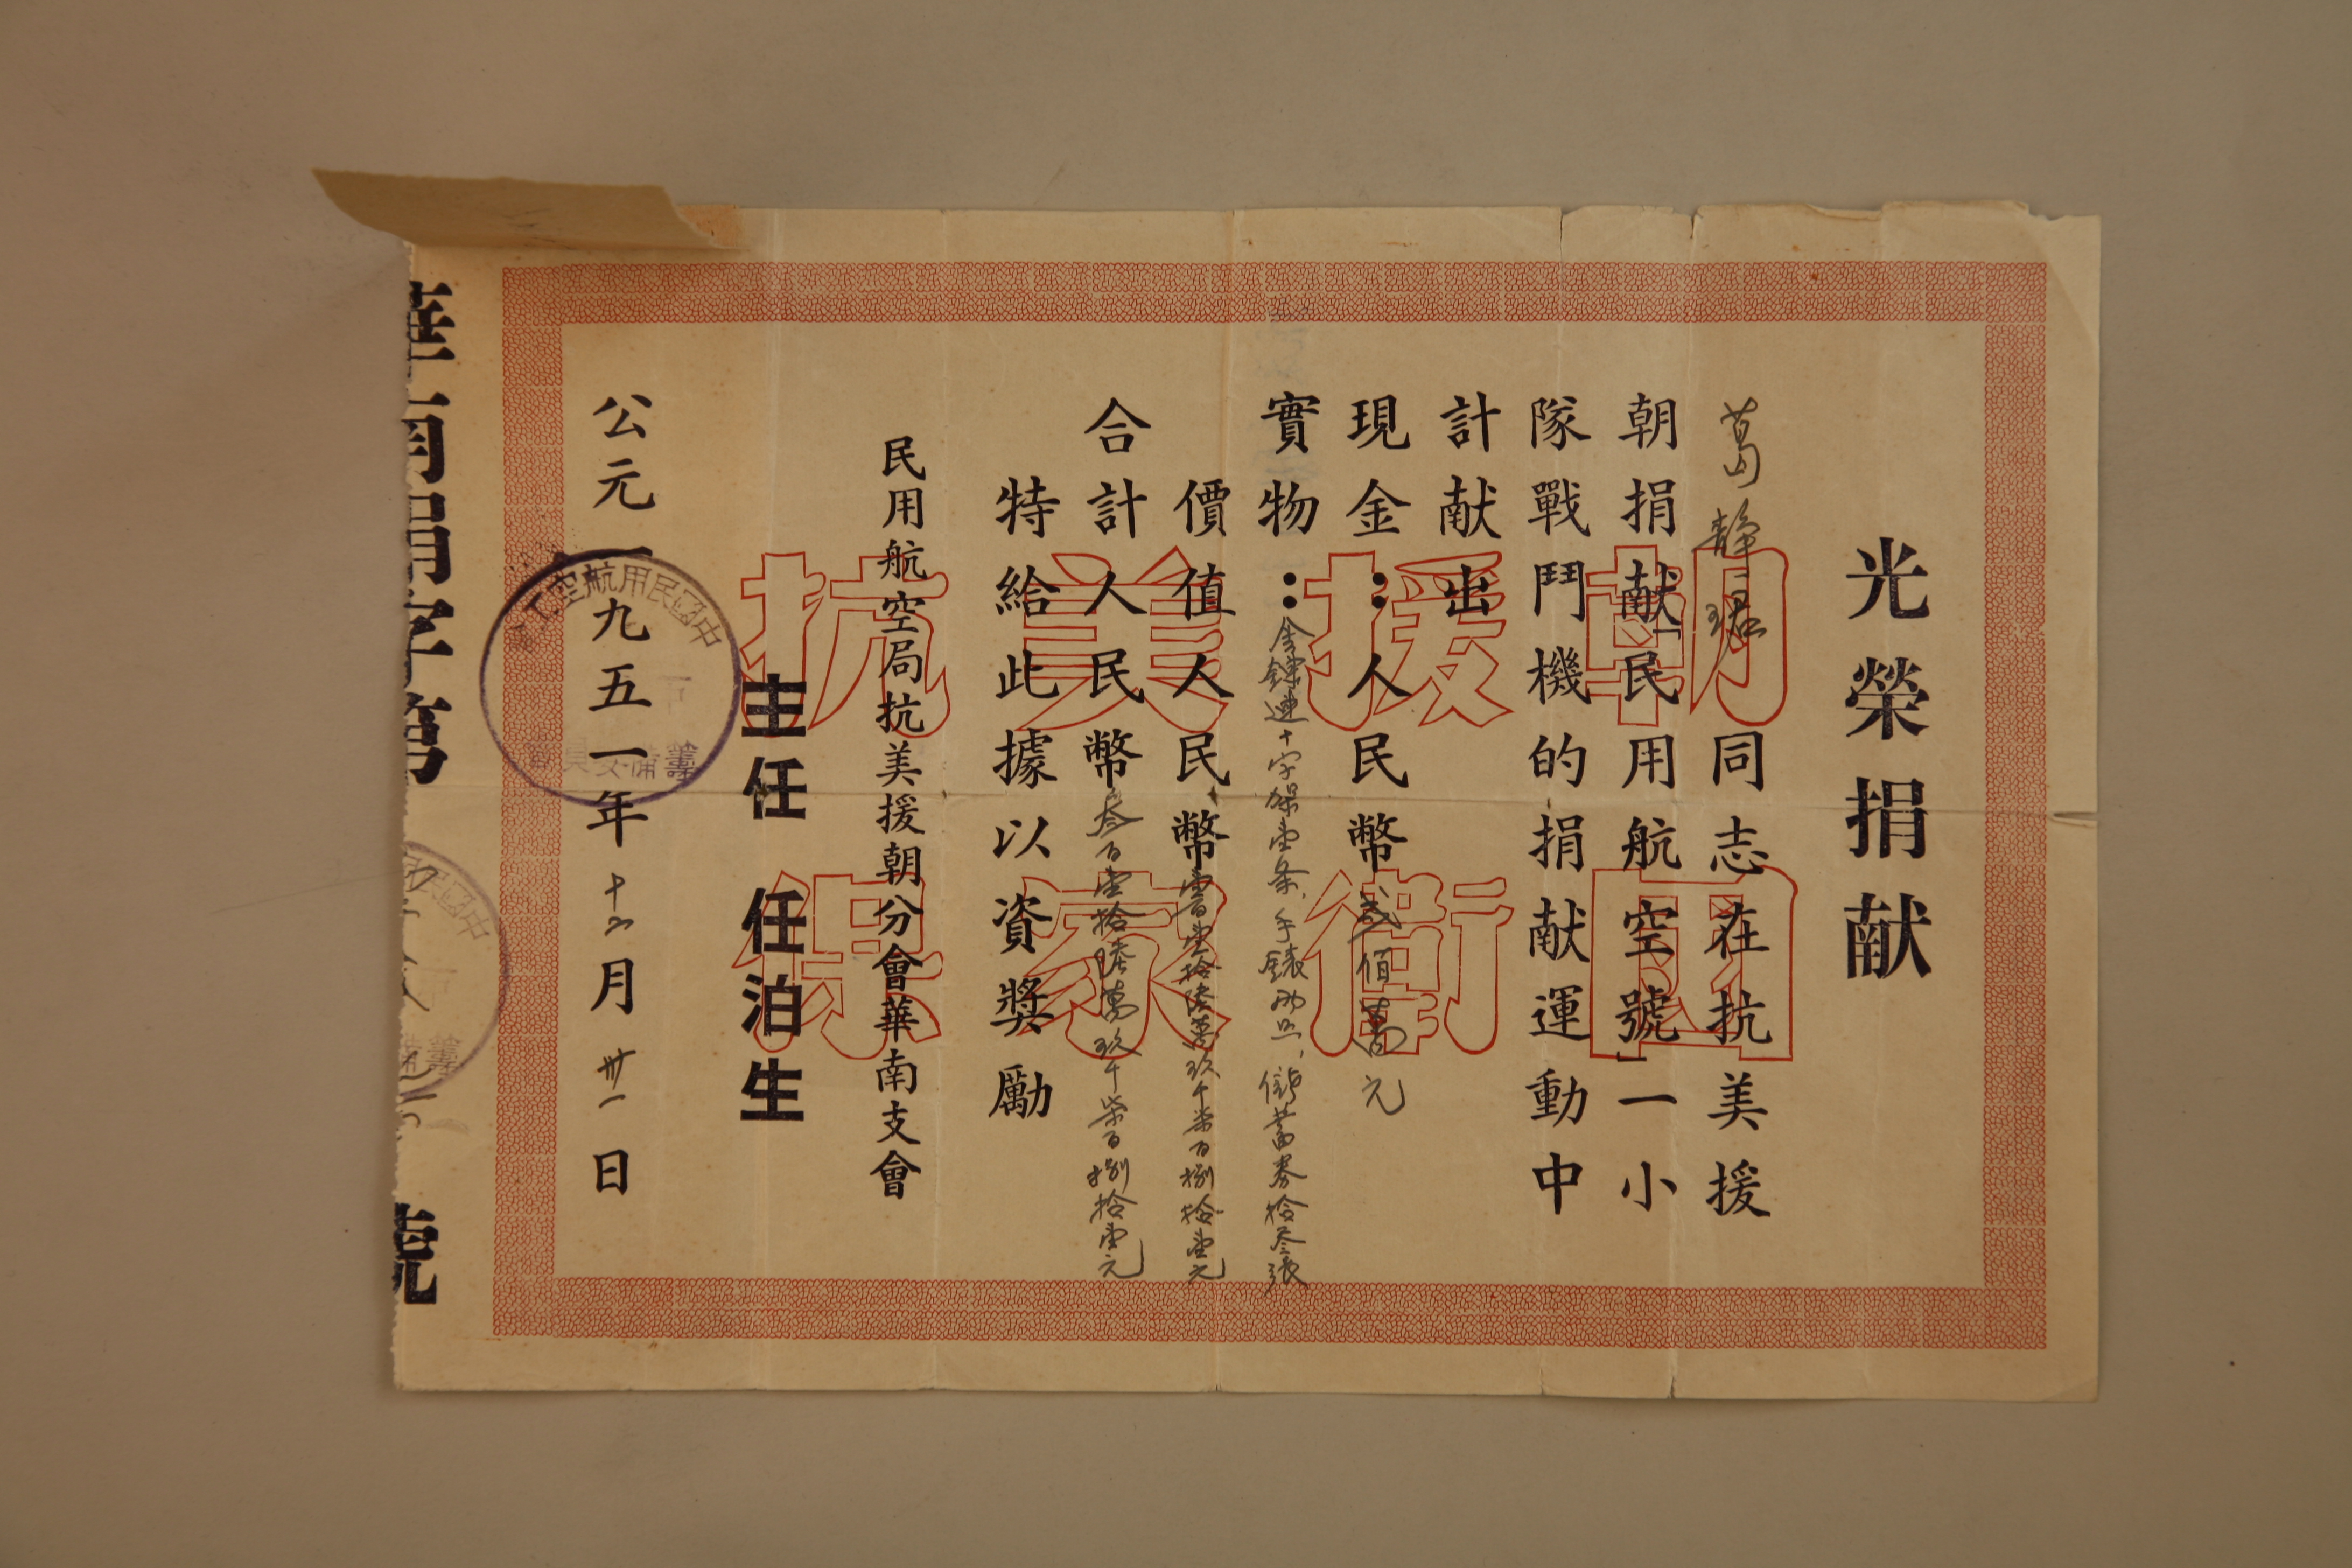 光榮捐献
葛靜珺同志在抗美援
朝捐献「民用航空號」一小
隊戰鬥機的捐献運動中
計献出
現金：人民幣貳佰萬元
實物：金鍊連十字架壹条，手錶兩只，儲蓄券拾叁張
價值人民幣壹百壹拾陸萬玖千柒百捌拾壹元
合計人民幣叁百壹拾陸萬玖千柒百捌拾壹元
特給此據以資獎勵
民用航空局抗美援朝分會華南支會
主任 任泊生
公元一九五一年十二月卅一日
抗美援朝
保家衛國
中國民用航空工
籌備委員會
華南捐字第 號
中國民
籌備